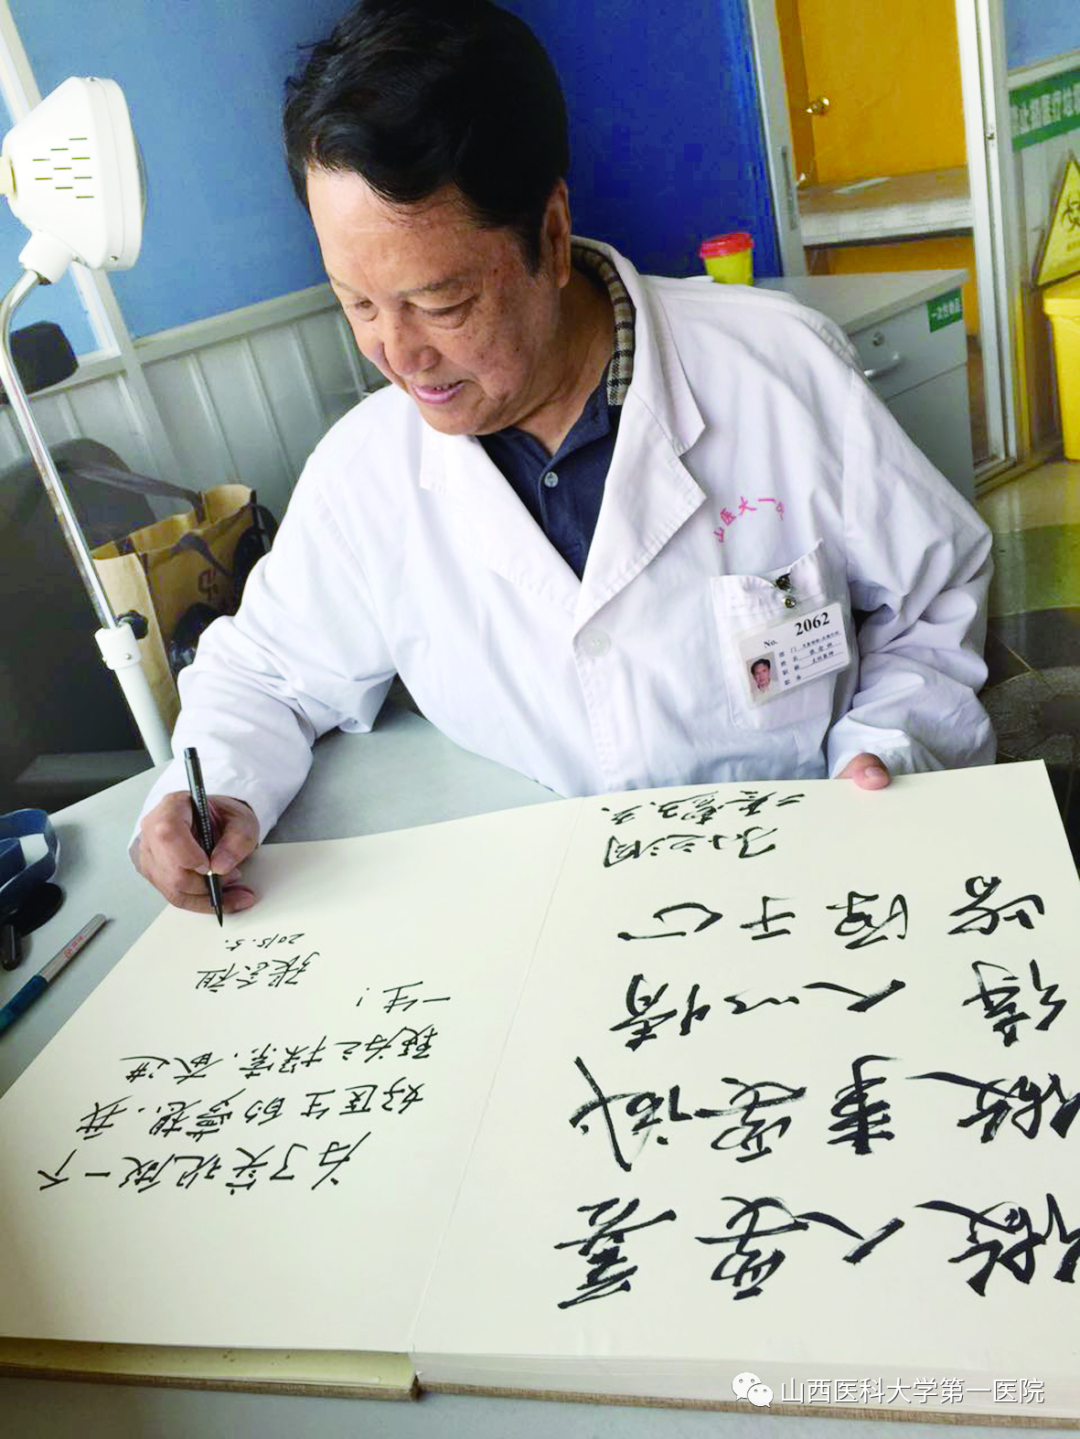 止 医疗垃
一次性物品
山医大一
No. 2062
为了实现做一个
好医生的梦想.我
为之探索.奋进
一生!
2015.5.
做人要善
做事要诚
待人以情
皆源于心
山西医科大学第一医院